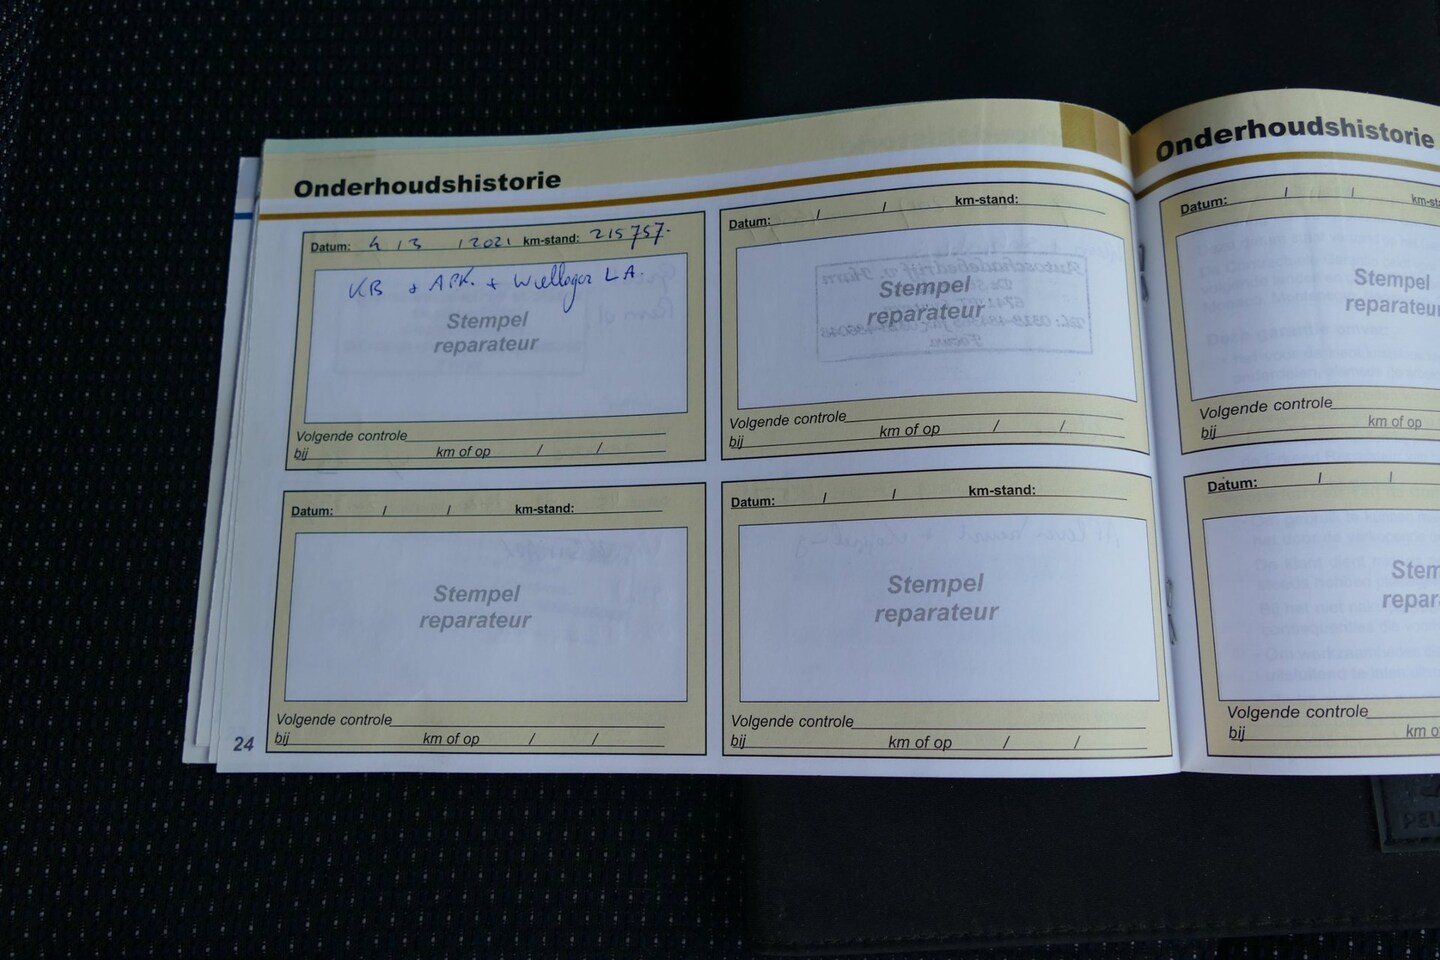 Onderhoudshistorie
Datum: 4 / 3 / 2021 km-stand: 215757.
KB + APK. + Wiellager LA.
Stempel
reparateur
Volgende controle
bij km of op / /
Datum: / / km-stand:
Stempel
reparateur
Volgende controle
bij km of op / /
Datum: / / km-stand:
Stempel
reparateur
Volgende controle
bij km of op / /
Datum: / / km-stand:
Stempel
reparateur
Volgende controle
bij km of op / /
24
Onderhoudshistorie
Datum: / / km-sta
Stempel
reparateur
Volgende controle
bij km of op
Datum: / /
Stem
repar
Volgende controle
bij km o
PEU